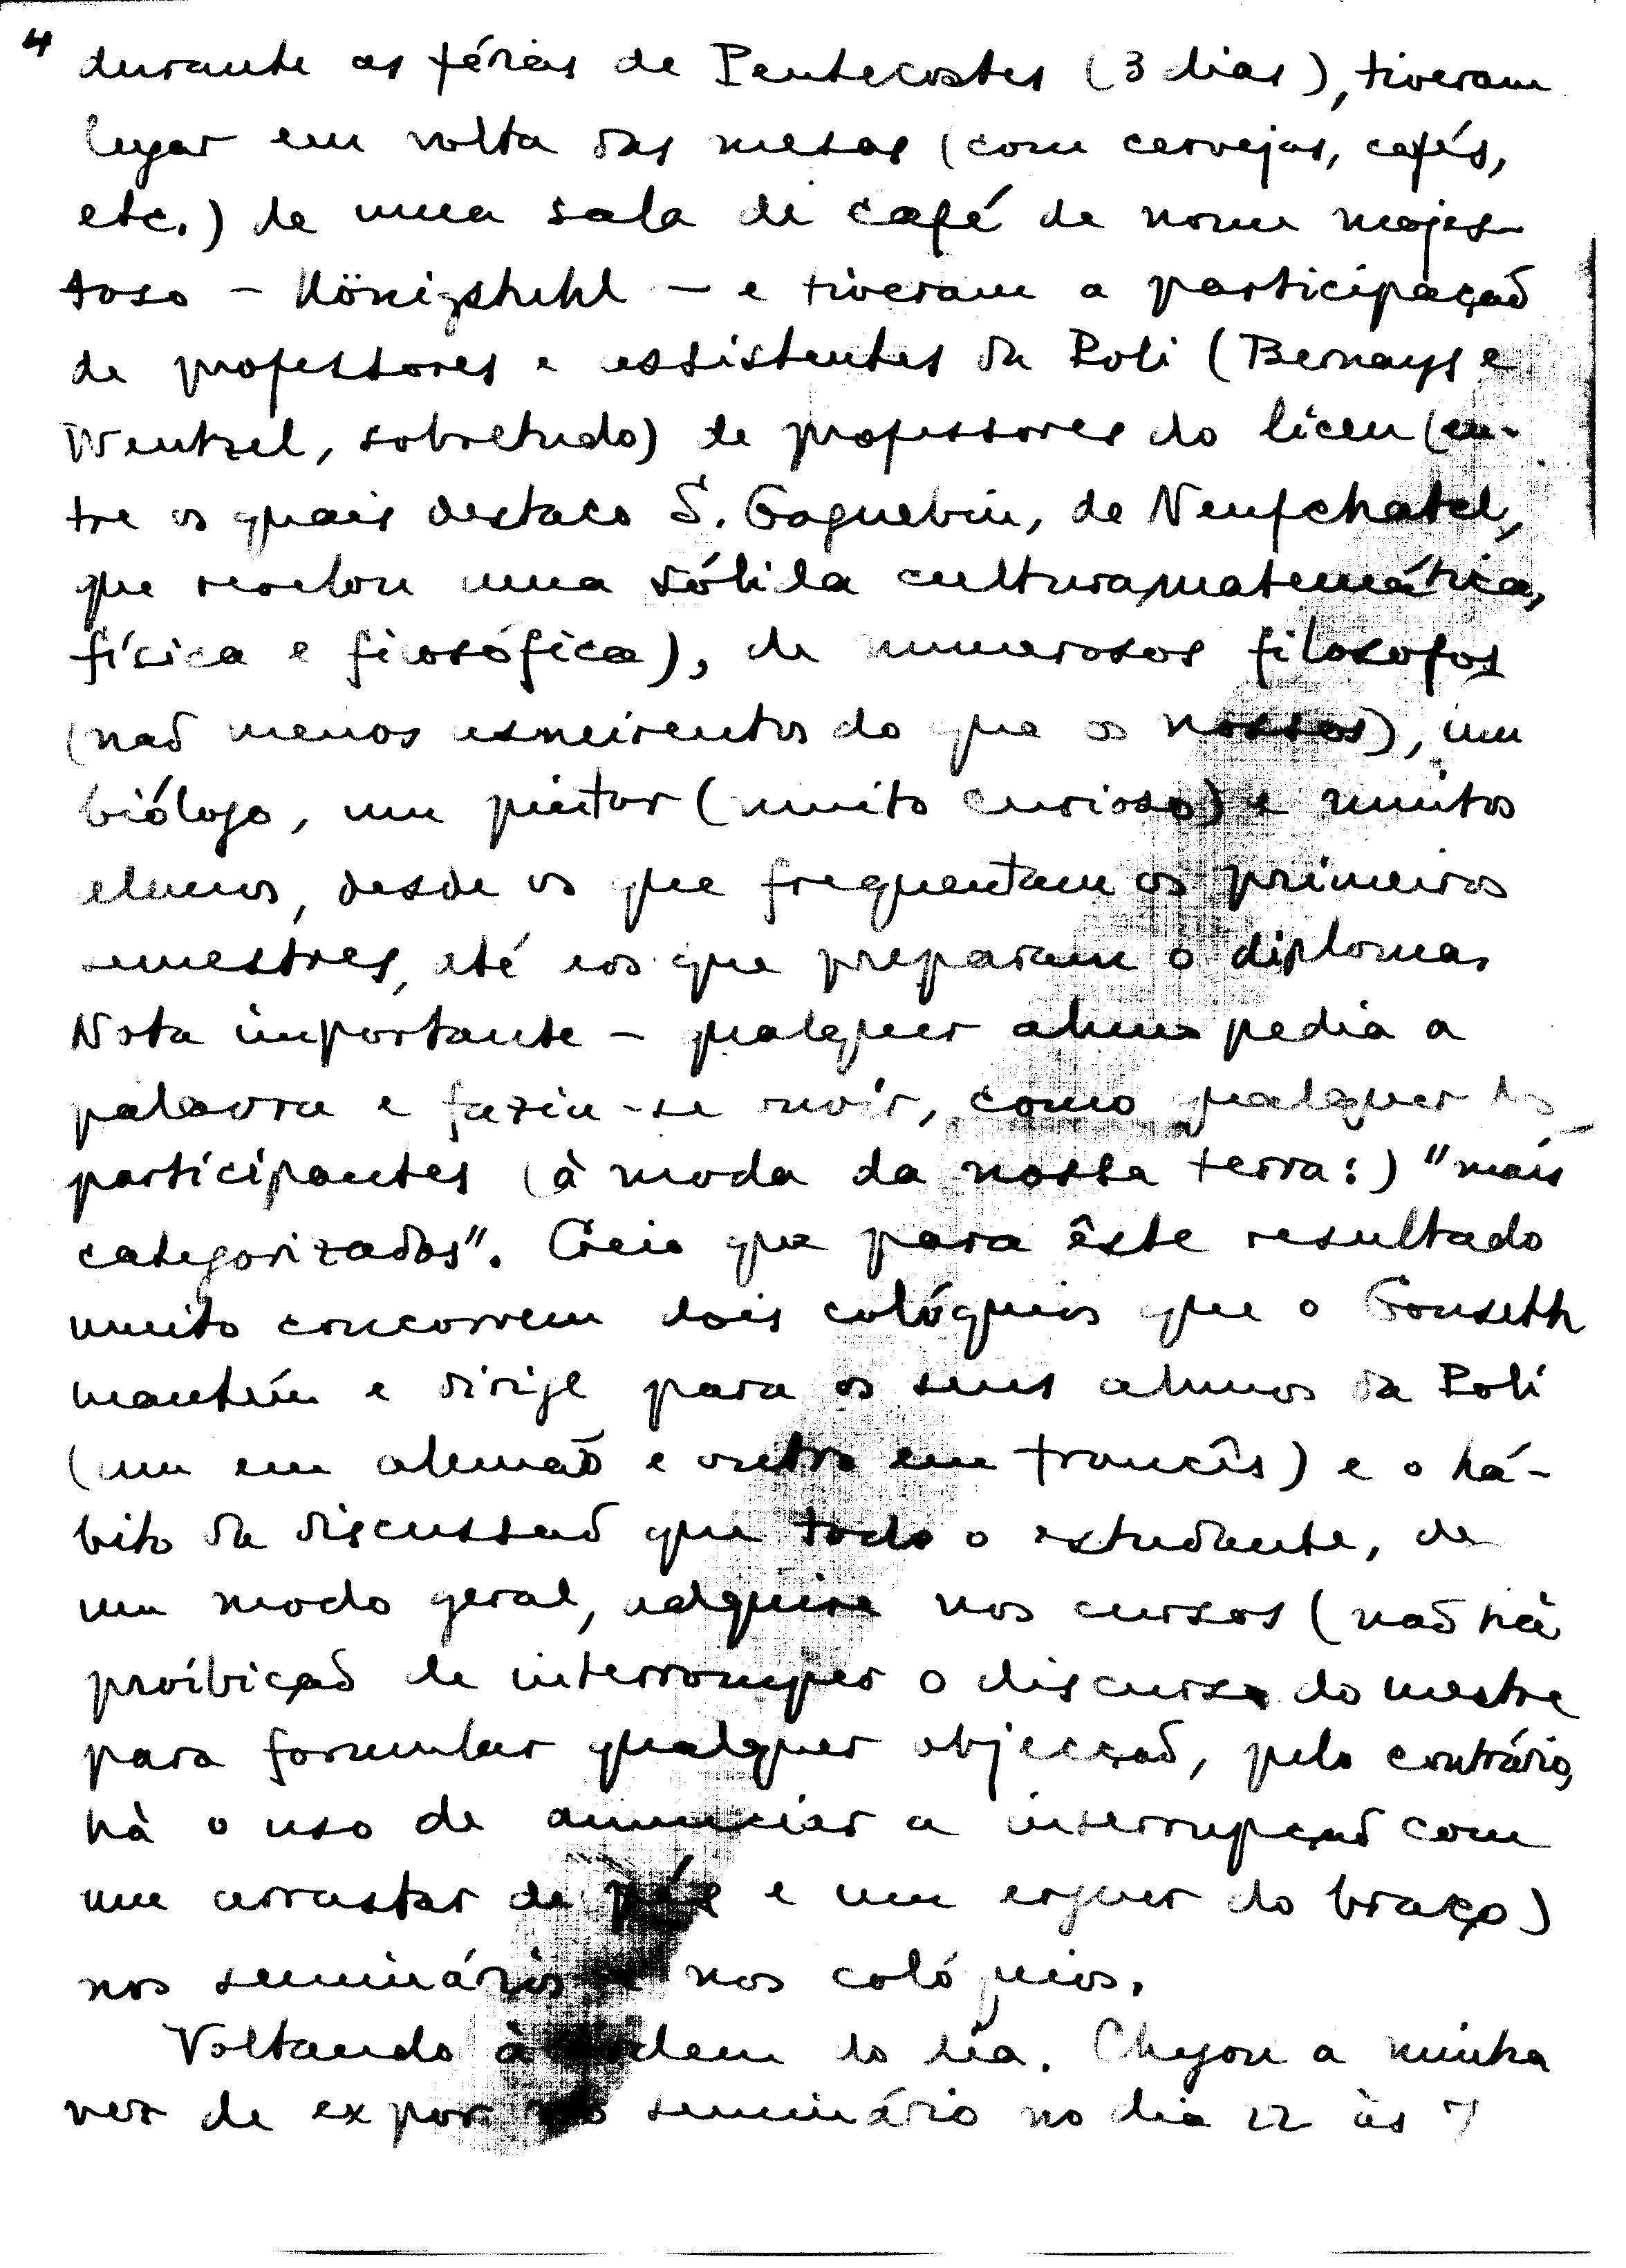 4
durante as férias de Pentecostes (3 dias), tiveram
lugar em volta das mesas (com cervejas, cafés,
etc.) de uma sala de café de nome majes-
toso – Königstuhl – e tiveram a participação
de professores e assistentes da Poli (Bernays e
Wentzel, sobretudo) de professores do liceu (en-
tre os quais destaco S. Gagnebin, de Neufchatel,
que revelou uma sólida cultura, matemática,
física e fiosófica), de numerosos filosofos
(não menos esneirentos do que os nossos), um
biólogo, um pintor (muito curioso) e muitos
alunos, desde os que frequentam os primeiros
semestres, até aos que preparam o diploma.
Nota importante – qualquer aluno pedia a
palavra e fazia-se ouvir, como qualquer dos
participantes (à moda da nossa terra:) "mais
categorizados". Creio que para êste resultado
muito concorrem dois colóquios que o Gonseth
mantém e dirige para os seus alunos da Poli
(um em alemão e outro em francês) e o há-
bito da discussão que todo o estudante, de
um modo geral, adquire nos cursos (não há
proíbição de interromper o discurso do mestre
para formular qualquer objecção, pelo contrário,
hà o uso de anunciar a interrupção com
um arrastar de pés e um erguer do braço)
nos seminários e nos colóquios.
Voltando à ordem do dia. Chegou a minha
vez de expor no seminário no dia 12 às 7